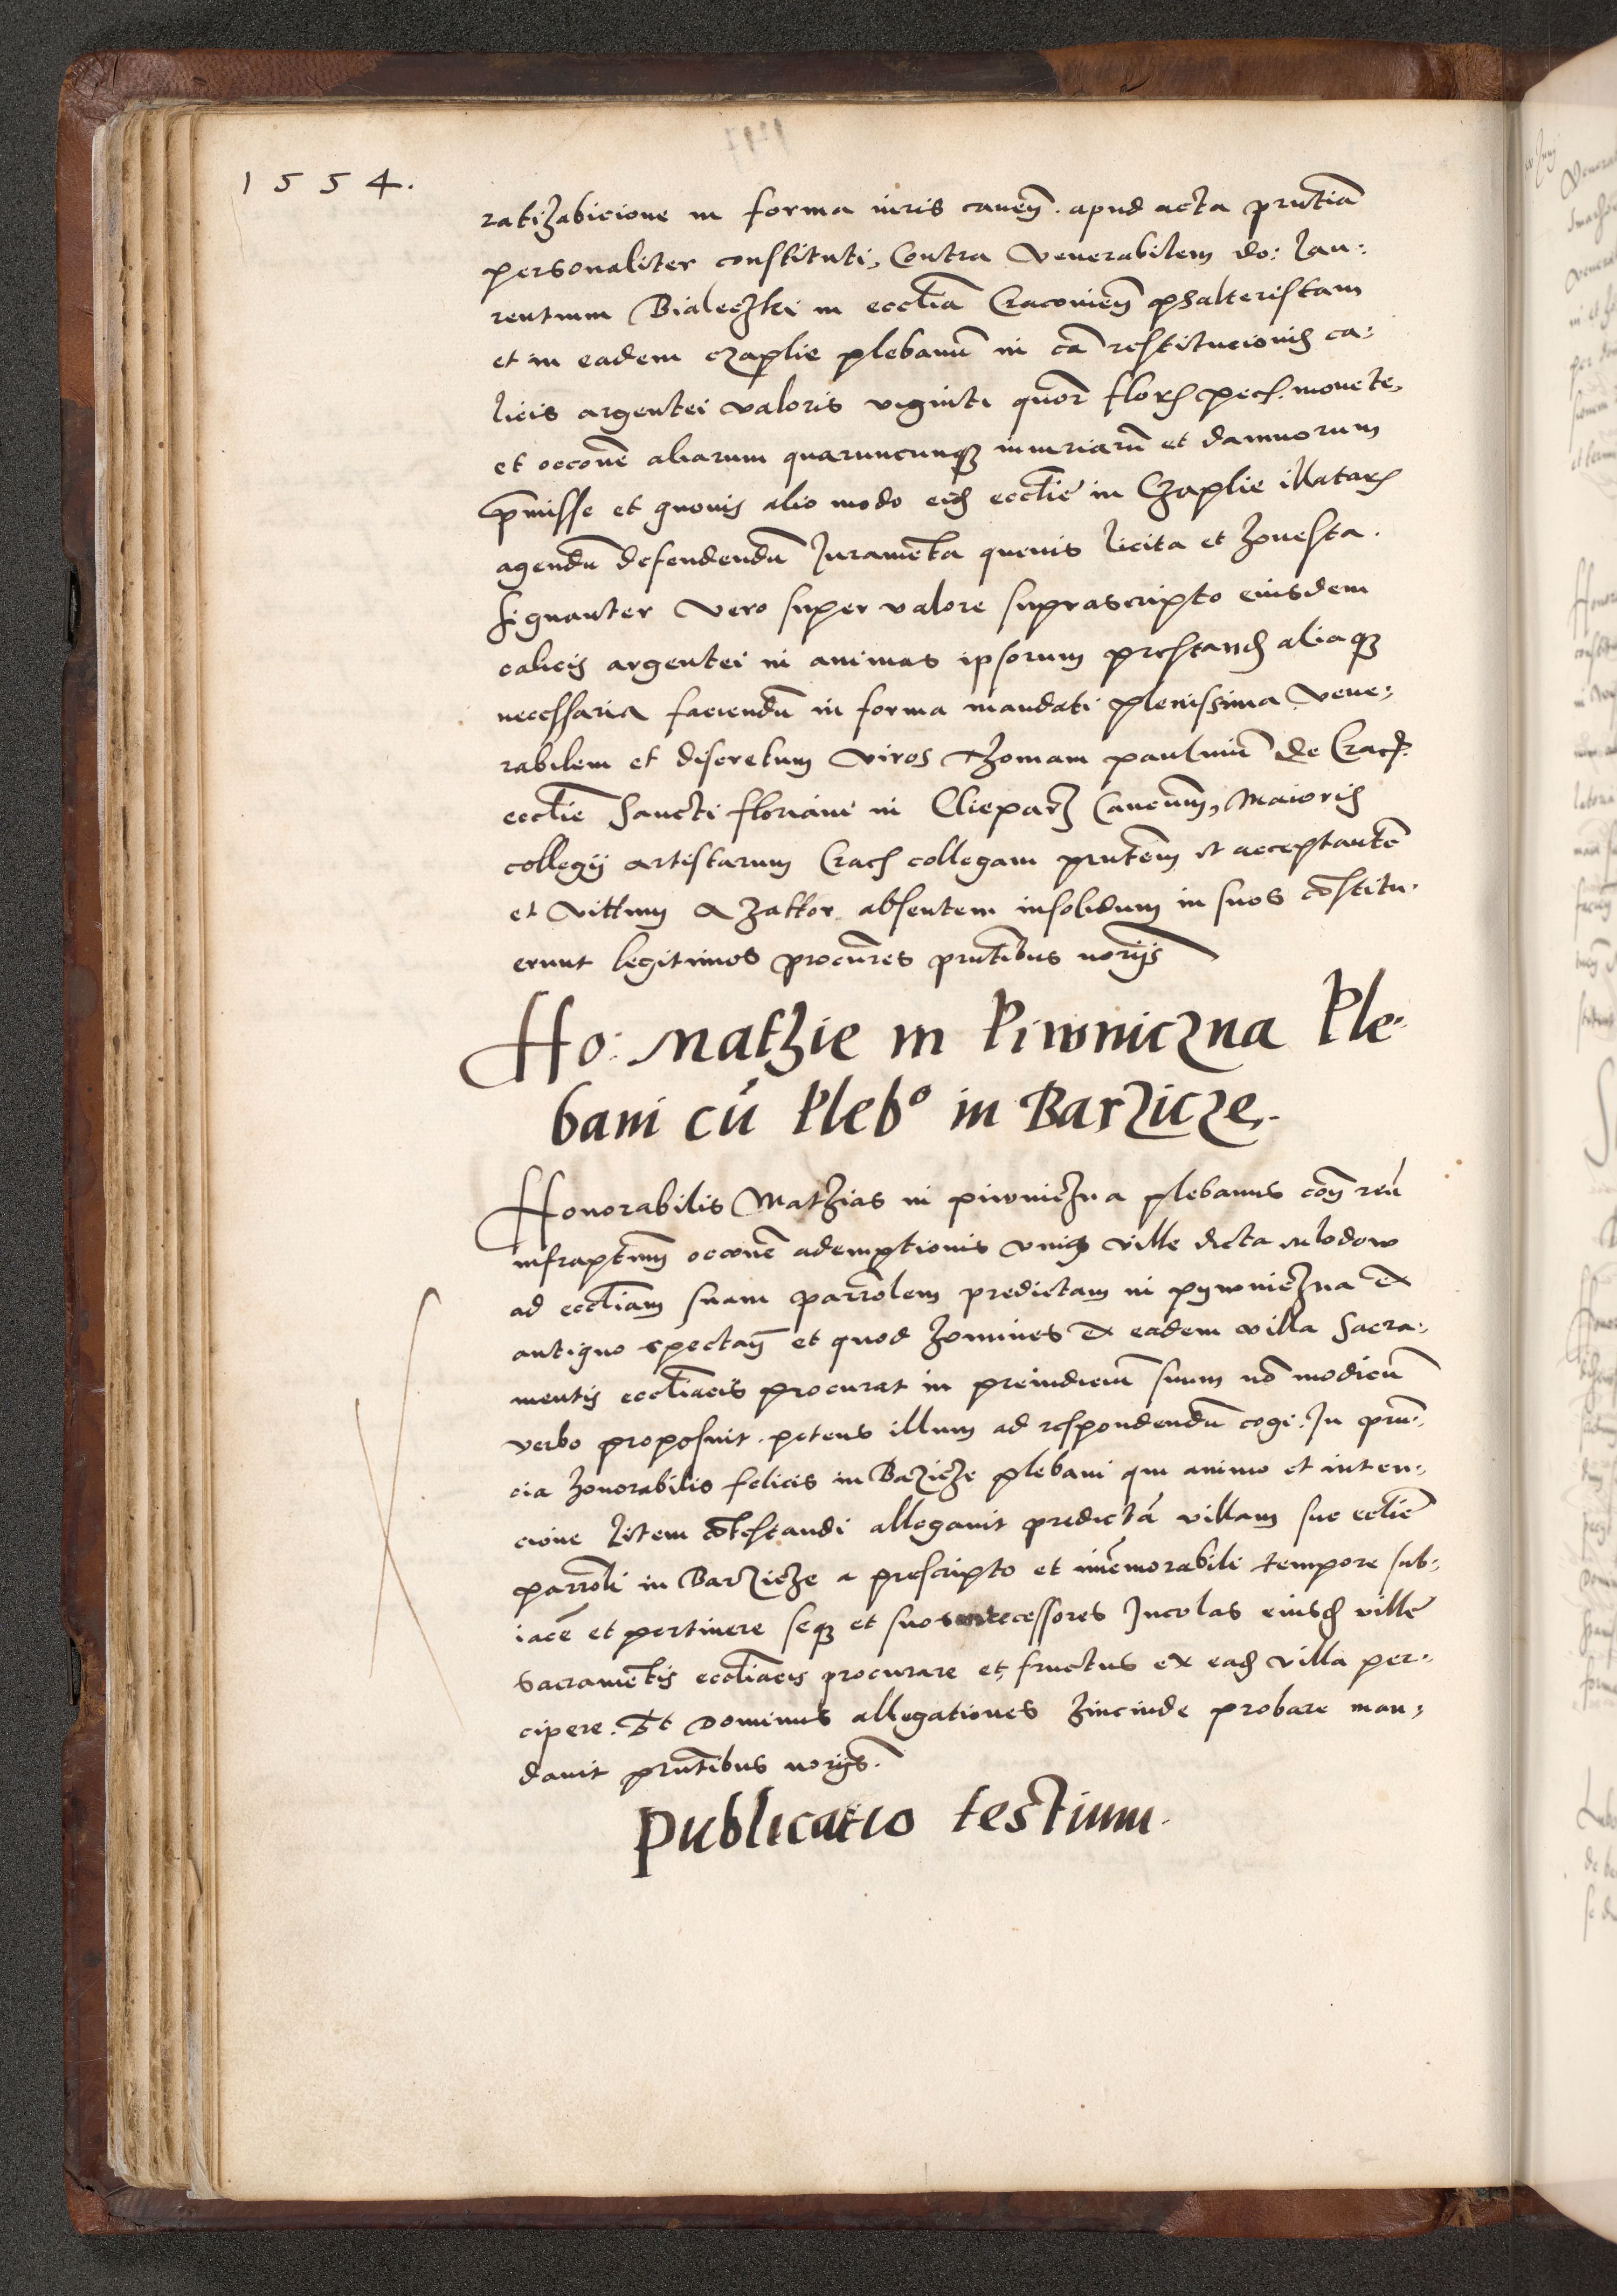 1554.
ratihabicione in forma iuris caveñ. apud acta pñtia
personaliter constituti, Contra Venerabilem do: Lau:
rentium Bialeczki in ecclia Cracovieñ psalteristam
et in eadem Czaplie plebanū in cā restitucionis ca:
licis argentei valoris viginti quor flor pec. monete,
et occone aliarum quaruncunq iniuriarū et damnorum
pmisse et quovis alio modo eid ecclie in Czaplie illatar
agendū defendendū Juramēta quevis licita et honesta.
signanter vero super valore suprascripto eiusdem
calicis argentei in animas ipsorum prestand aliaq
necessaria faciendū in forma mandati plenissima Vene:
rabilem et discretum viros Thomam paulinū de Crac.
ecclie Sancti floriani in Clieparz Canocum, Maioris
collegij artistarum Crac collegam pñtem et acceptantē
et Vittum a Zattor absentem insolidum in suos cōstitu:
erunt legitimos procures pñtibus norijs
Ho: Mathie in Piwniczna Ple:
bani cū Plebo in Barzicze.
Honorabilis Mathias in piwniczna plebanus con reū
infraptum occone ademptionis unius ville dicta mlodow
ad eccliam suam parrolem predictam in pywniczna ex
antiquo spectañ et quod homines ex eadem villa Sacra:
mentis eccliacis procurat in preiudiciū suum nō modicū
verbo proposuit. petens illum ad respondendū cogi. In pñ:
cia honorabilis felicis in Barzicze plebani qui animo et inten:
cione litem cōtestandi allegavit predictā villam sue ecclie
parroli in Barzicze a prescripto et imēmorabili tempore sub:
iacē et pertinere seq et suos antecessores Incolas eiusd ville
Sacramētis eccliacis procurare et fructus ex ead villa per:
cipere. Et Dominus allegationes hincinde probare man:
davit pñtibus norijs.
Publicatio testium.